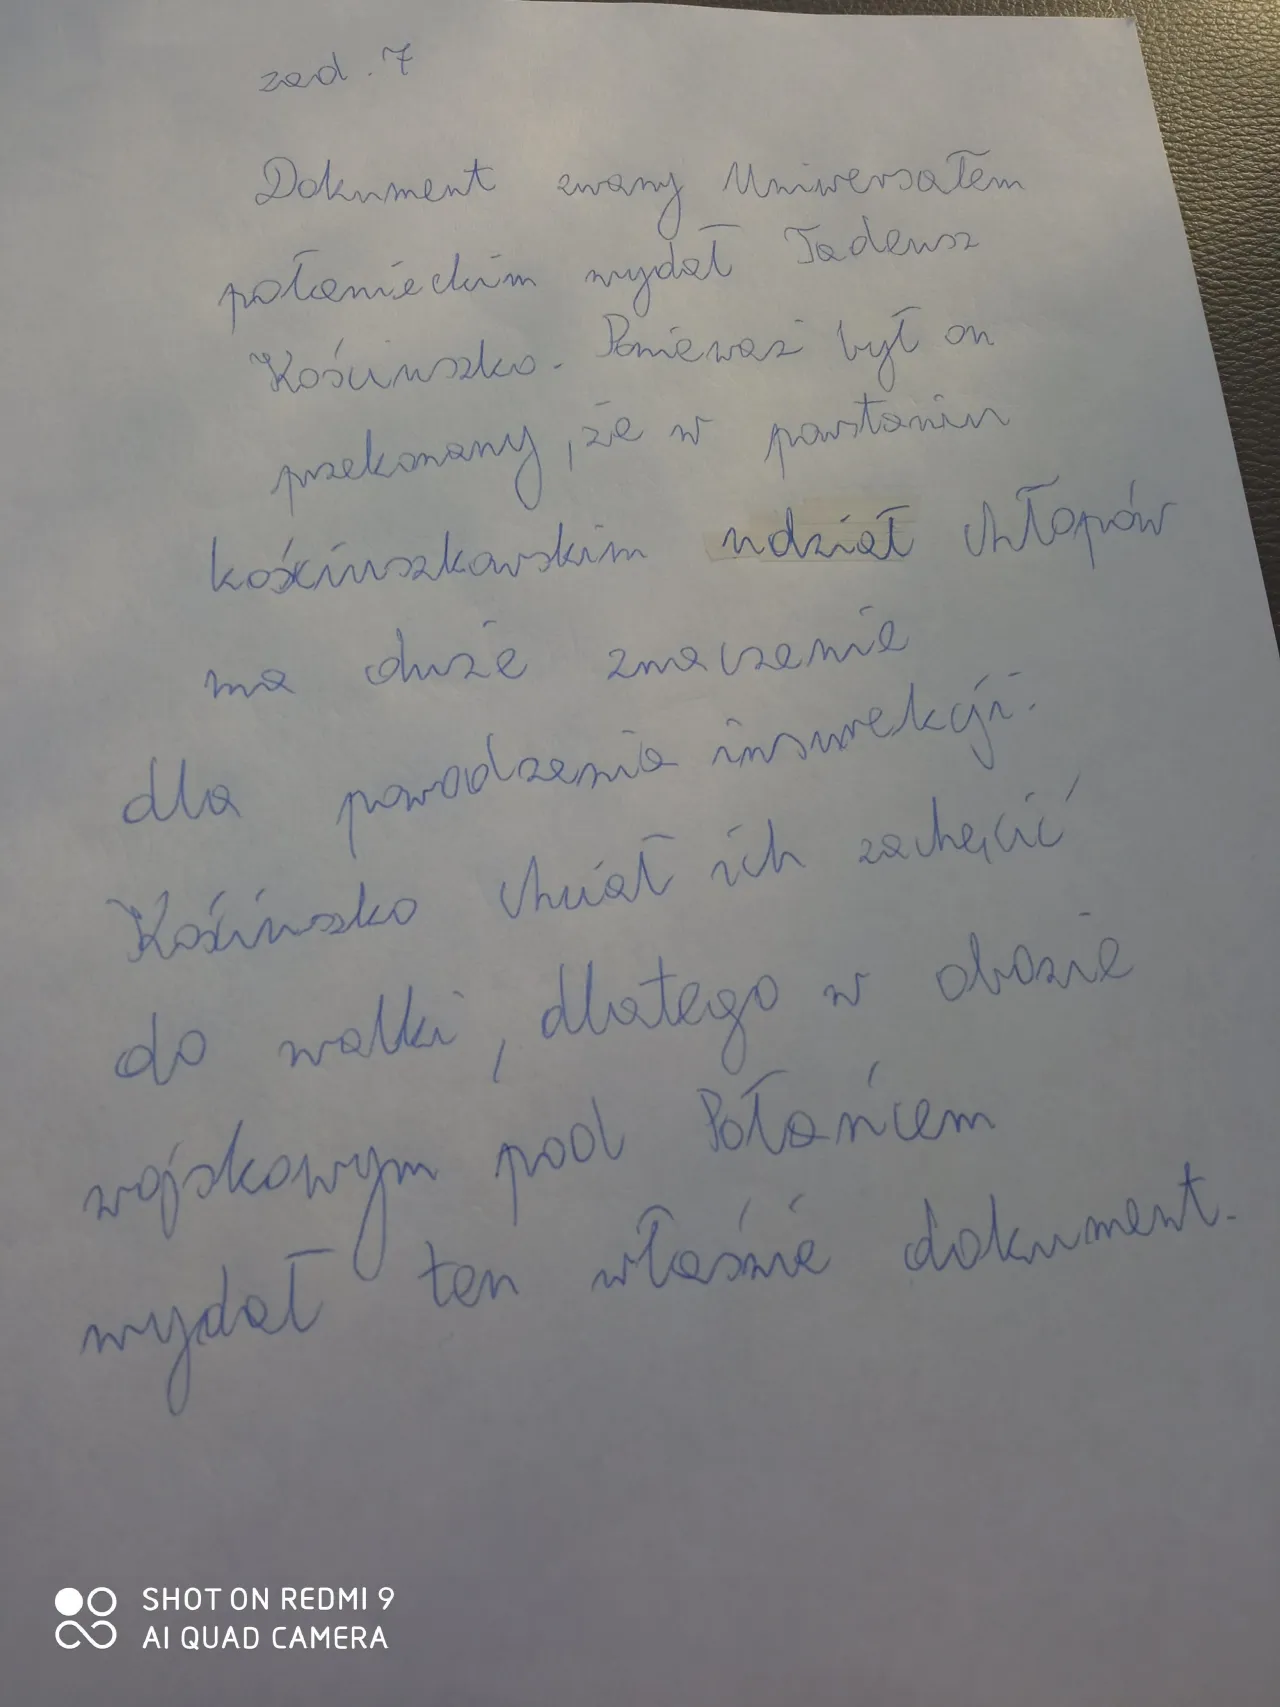 zad. 7
Dokument zwany Uniwersałem
połanieckim wydał Tadeusz
Kościuszko. Ponieważ był on
przekonany, że w powstaniu
kościuszkowskim udział chłopów
ma duże znaczenie
dla powodzenia insurekcji.
Kościuszko chciał ich zachęcić
do walki, dlatego w obozie
wojskowym pod Połańcem
wydał ten właśnie dokument.
SHOT ON REDMI 9
AI QUAD CAMERA